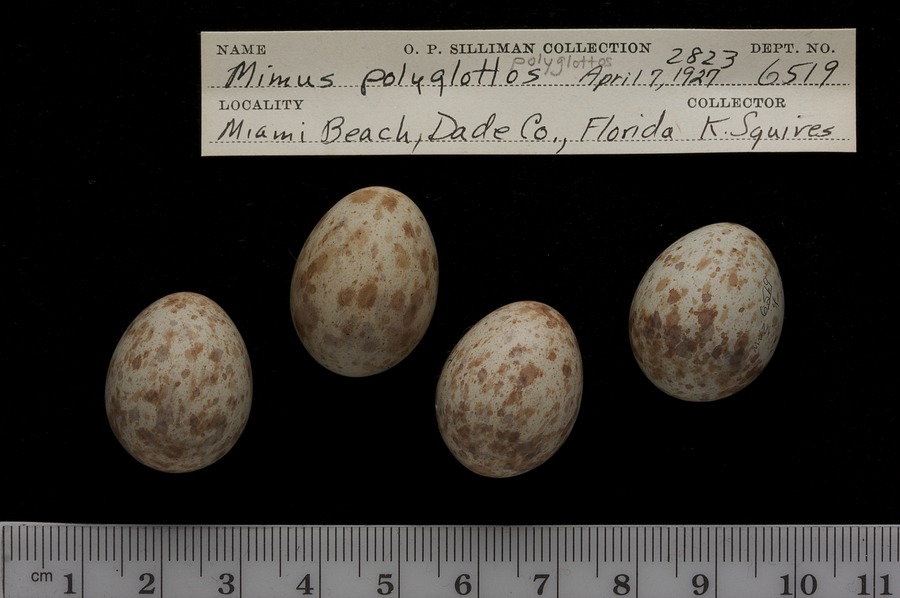 NAME O. P. SILLIMAN COLLECTION 2823 DEPT. NO.
polyglottos
Mimus polyglottos April 7, 1927 6519
LOCALITY COLLECTOR
Miami Beach, Dade Co., Florida K. Squires
6519
cm 1 2 3 4 5 6 7 8 9 10 11